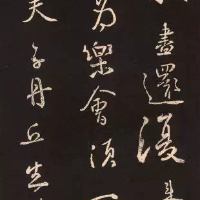 盡還復來
為樂會須一
夫子丹丘生